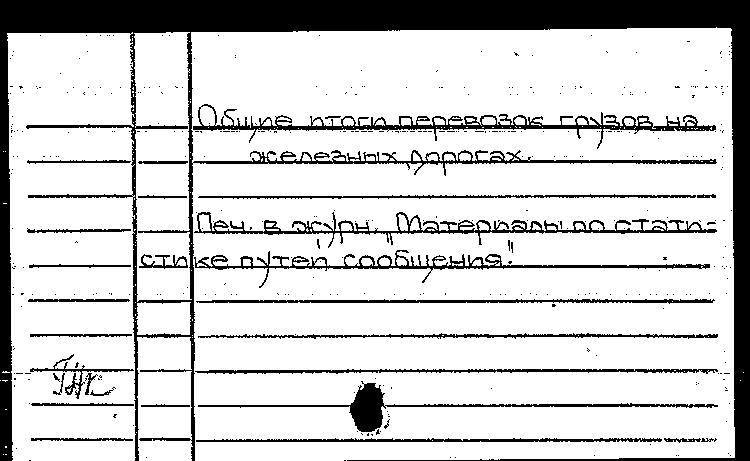 Общие итоги перевозок грузов на
железных дорогах.
Печ. в журн. "Материалы по стати-
стике путей сообщения".